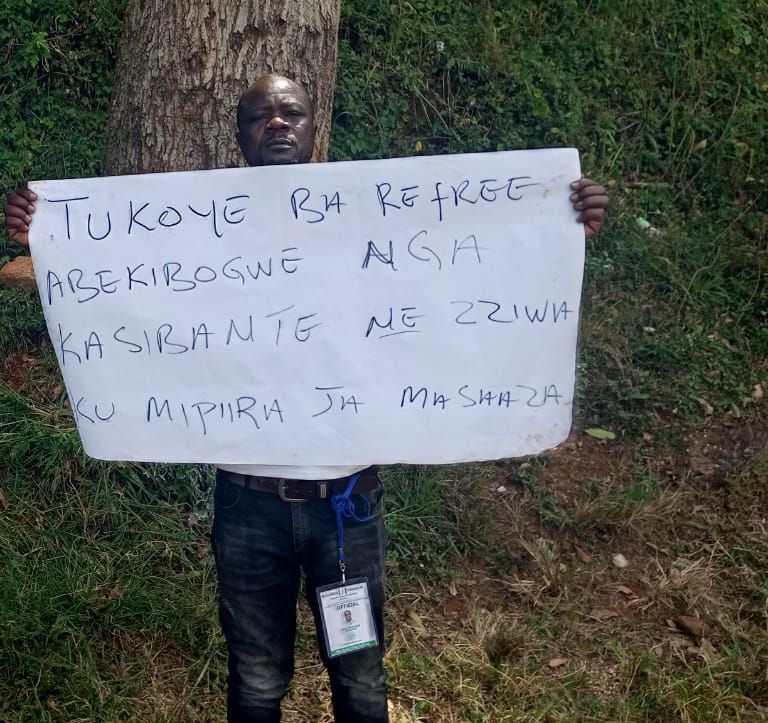 TUKOYE BA REfREE
ABEKIBOGWE NGA
KASIBANTE NE ZZIWA
KU MIPIIRA JA MASAAZA
OFFICIAL